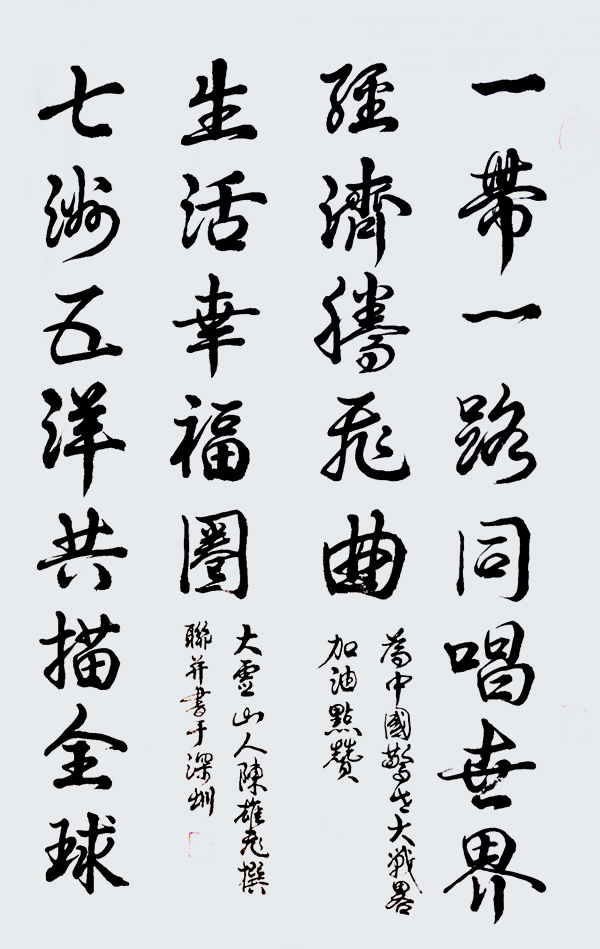 一帶一路同唱世界
經濟騰飛曲
為中國驚世大戰畧
加油點贊
七洲五洋共描全球
生活幸福圈
大霊山人陳雄撰
聯并書于深圳